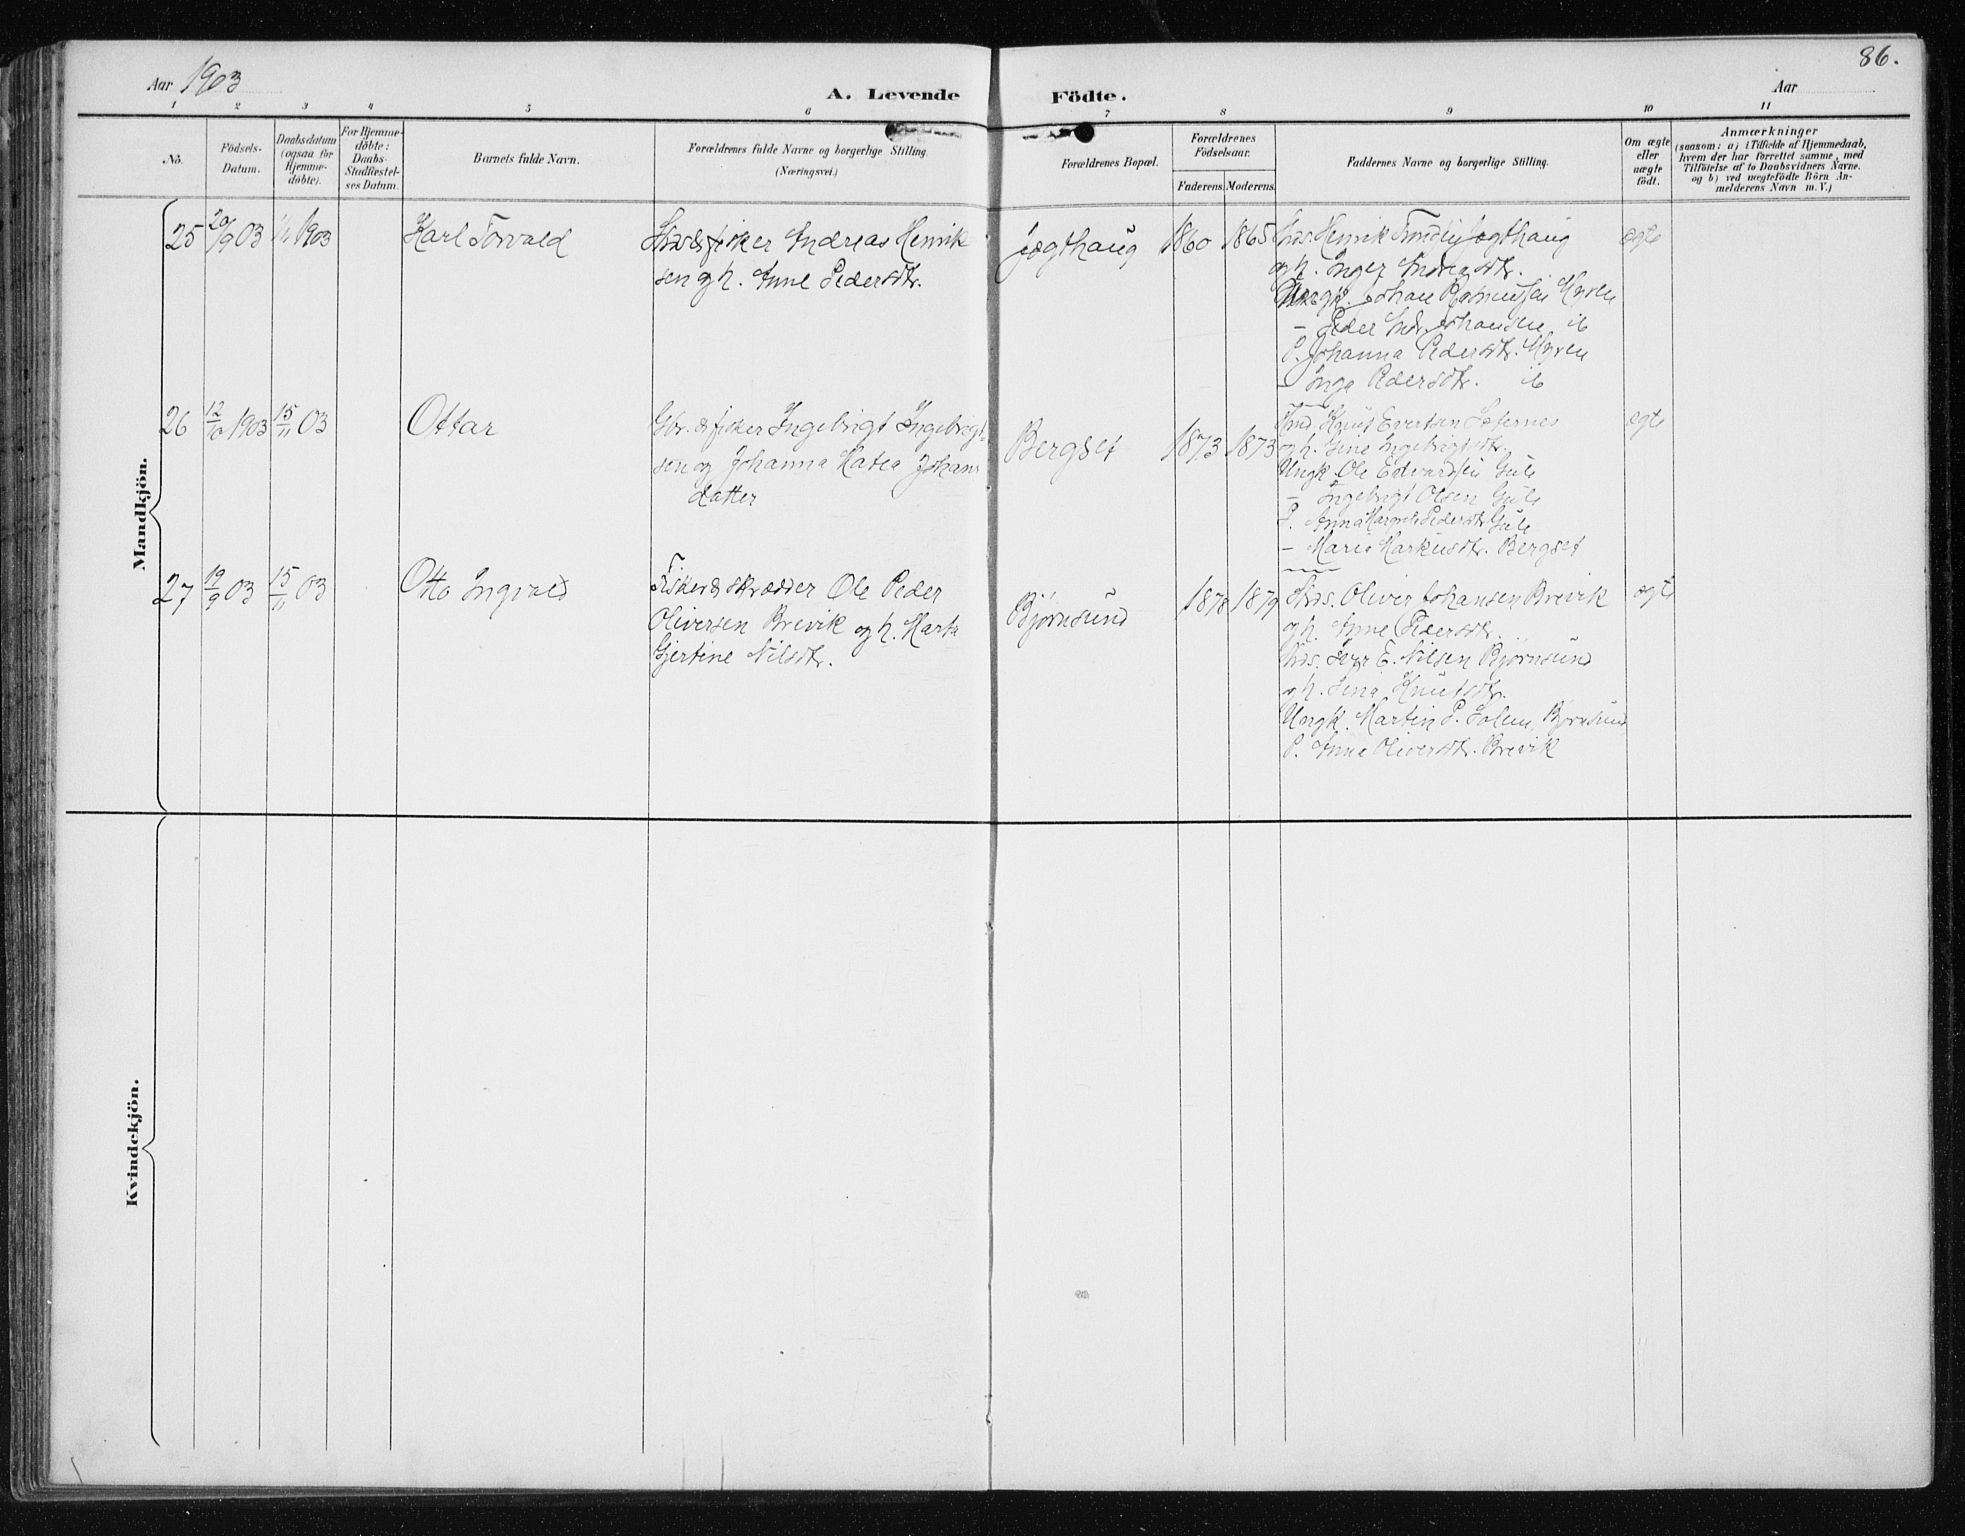 86.
Aar 1903
A. Levende Födte.
Aar
1 2 3 4 5 6 7 8 9 10 11
No.
Födsels-
Datum.
Daabsdatum
(ogsaa for
Hjemme-
döbte).
For Hjemme-
döbte:
Daabs-
Stadfæstel-
ses Datum.
Barnets fulde Navn.
Forældrenes fulde Navne og borgerlige Stilling.
(Næringsvei.)
Forældrenes Bopæl.
Forældrenes
Födselsaar.
Faderens. Moderens.
Faddernes Navne og borgerlige Stilling.
Om ægte
eller
uægte
födt.
Anmærkninger
(saasom: a) i Tilfælde af Hjemmedaab,
hvem der har forrettet samme, med
Tilföielse af to Daabsvidners Navne.
og b) ved uegtefödte Börn An-
melderens Navn m. V.)
Mandkjön.
25 20/9 03 1/11 1903 Karl Torvald
fisker Andreas Henrik
sen og h. Anne Pedersdtr.
Jægthaug 1860 1865
Henrik Jægthaug
og h. Inger
Ungk. Johan Rasmussen Myren
– Peder Johansen ib
P. Johanna Pedersdtr. Myren
– Inga Pedersdtr. ib
ægte
26 12/10 1903 15/11 03 Ottar
Gbr. & fisker Ingebrigt Ingebrigt
sen og Johanna Katea Johans
datter
Bergset 1873 1873
Knud Evertsen
og h. Ingebrigtsdtr.
Ungk Ole Edvardsen Gule
– Ingebrigt Olsen Gule
P. Anna Pedersdtr Gule
– Marie Markusdtr. Bergset
ægte
27 19/9 03 15/11 03 Otto Ingvald
Fisker & skrædder Ole Peder
Oliversen Brevik og h. Marta
Gjertine Nilsdtr.
Bjørnsund 1878 1879
Oliver Johansen Brevik
og h. Anne Pedersdtr.
E. Nilsen Bjørnsund
og h. Knutsdtr.
Ungk. Martin P. Solem, Bjørnsund
P. Anne Oliversdtr. Brevik
ægte
Kvindekjön.